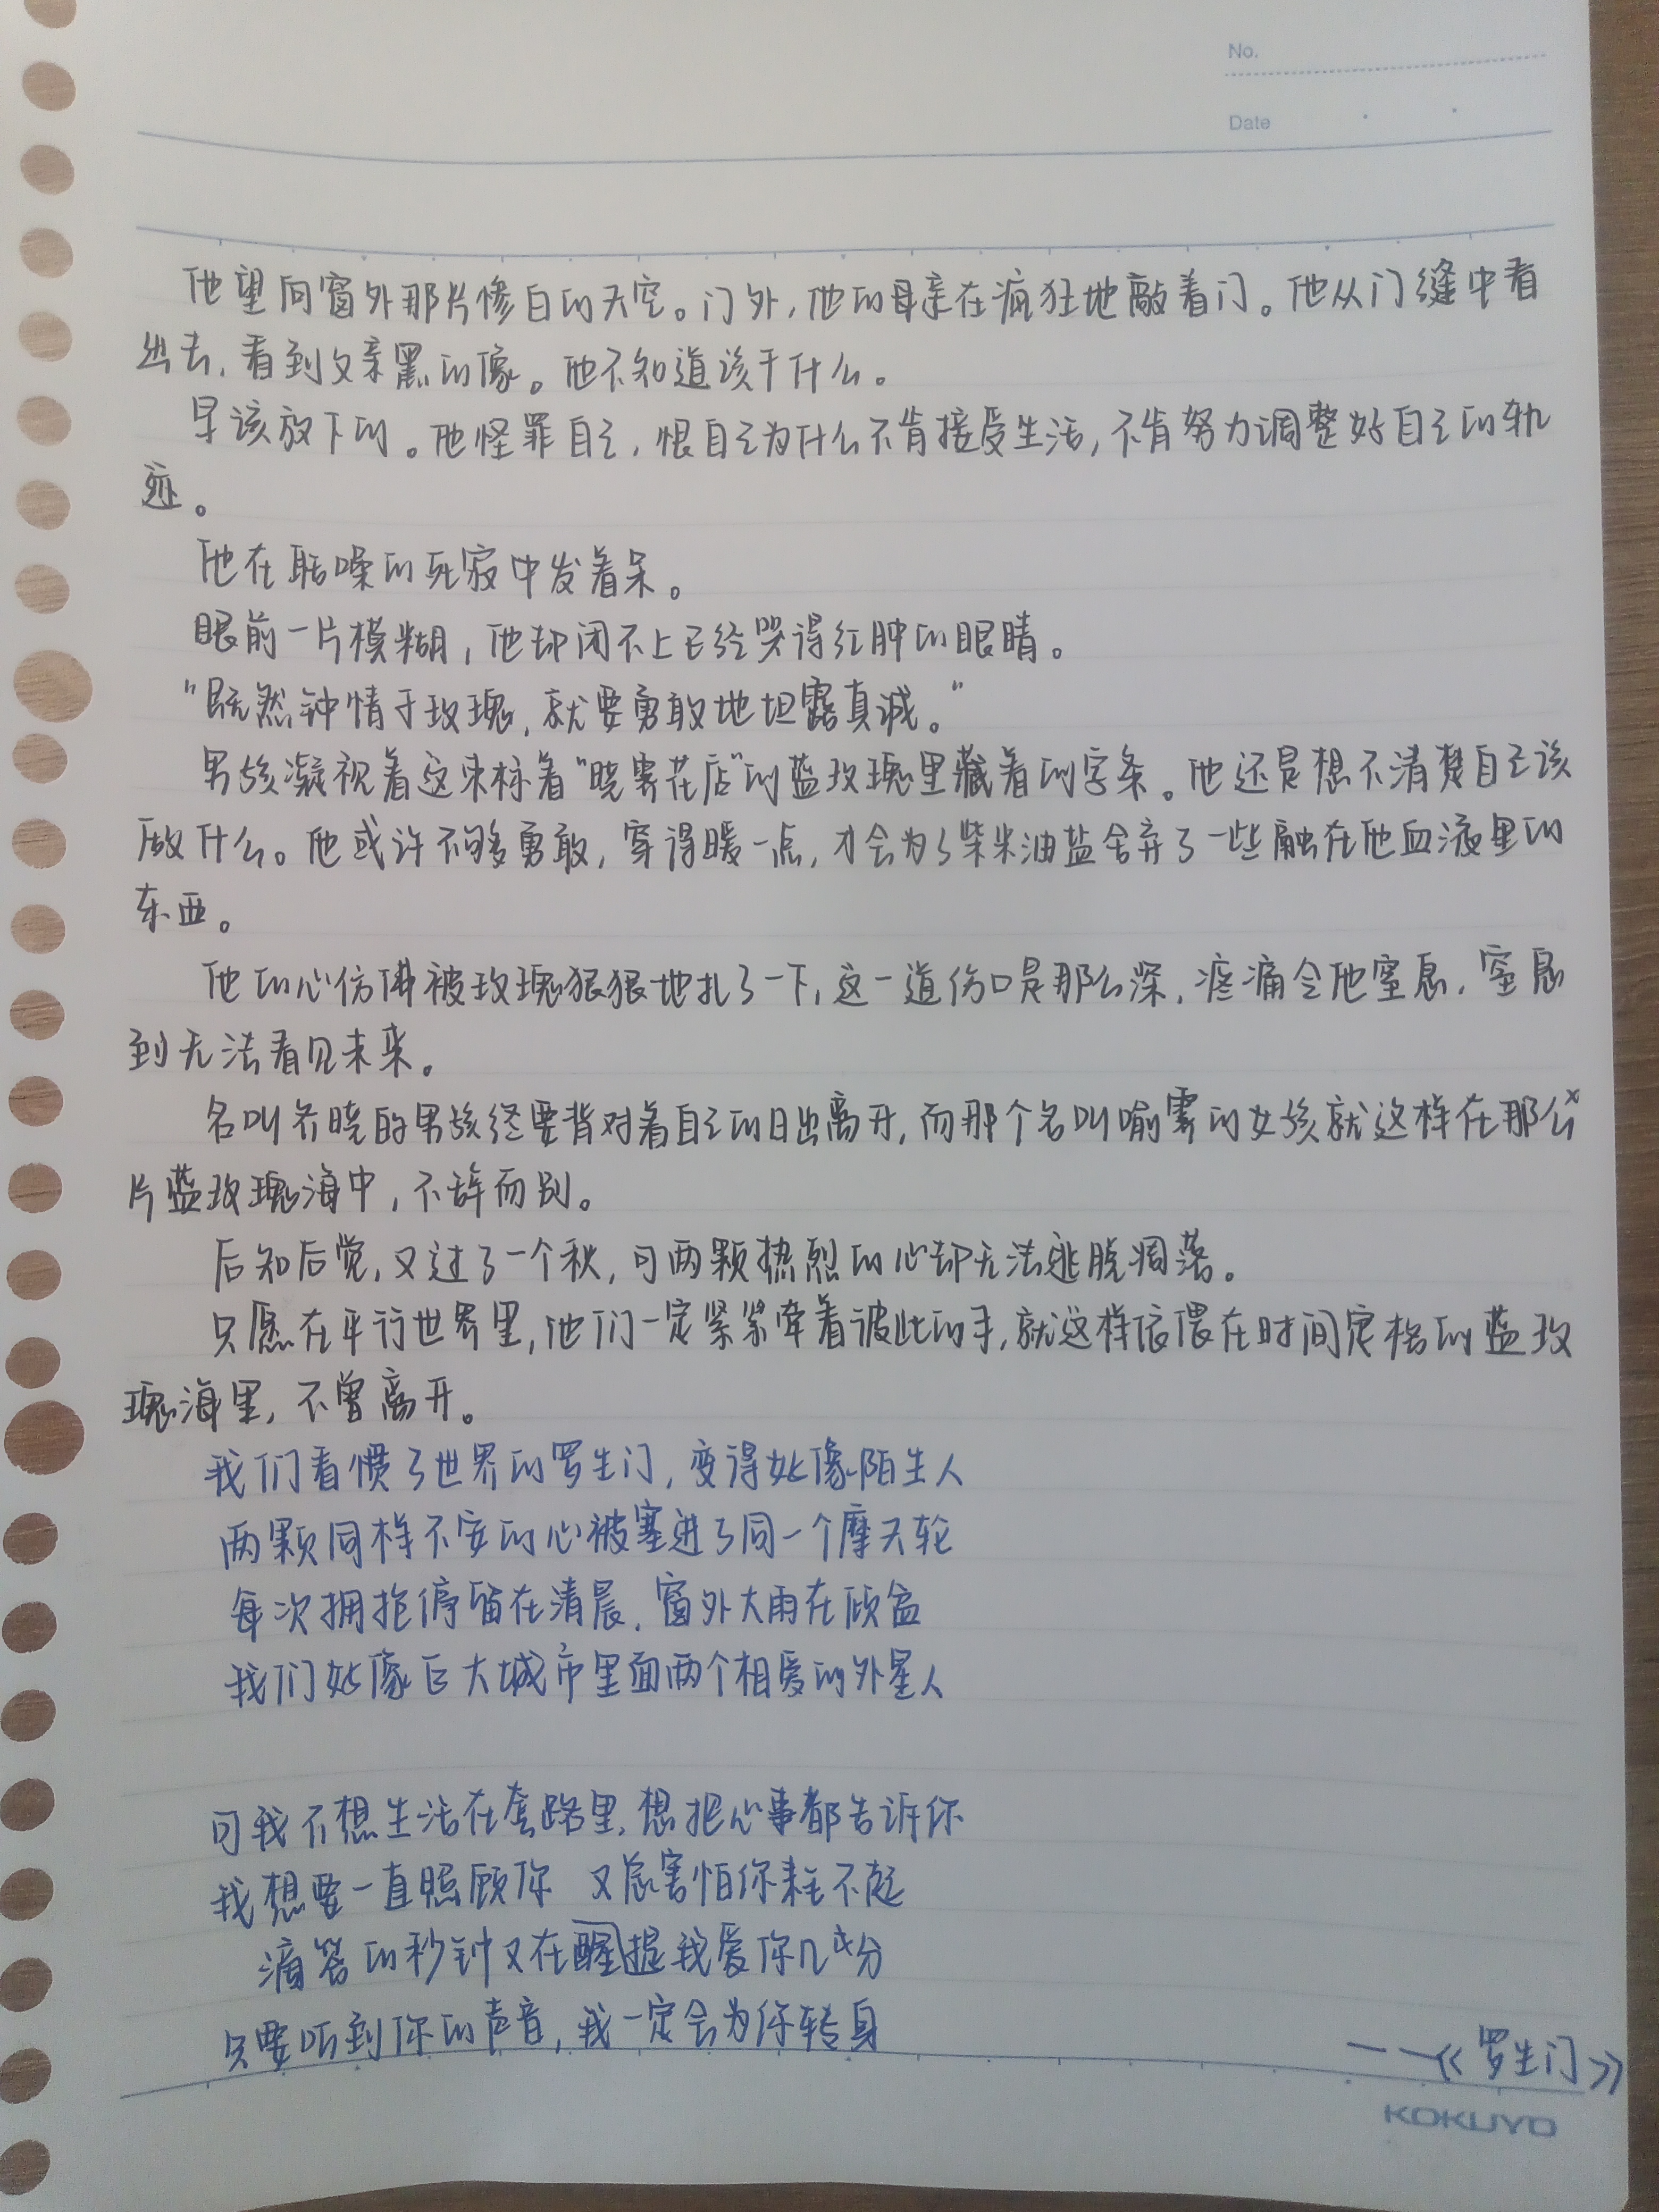 No.
Date
他望向窗外那片惨白的天空。门外,他的母亲在疯狂地敲着门。他从门缝中看
出去,看到父亲黑的像。他不知道该干什么。
早该放下的。他怪罪自己,恨自己为什么不肯接受生活,不肯努力调整好自己的轨
迹。
他在聒噪的死寂中发着呆。
眼前一片模糊,他却闭不上已经哭得红肿的眼睛。
"既然钟情于玫瑰,就要勇敢地坦露真诚。"
男孩凝视着这束标着"晓雾花店"的蓝玫瑰里藏着的字条。他还是想不清楚自己该
做什么。他或许不够勇敢,穿得暖一点,才会为了柴米油盐舍弃了一些融在他血液里的
东西。
他的心仿佛被玫瑰狠狠地扎了一下,这一道伤口是那么深,疼痛令他窒息,窒息
到无法看见未来。
名叫乔晓的男孩终要背对着自己的日出离开,而那个名叫喻雾的女孩就这样在那么
片蓝玫瑰海中,不辞而别。
后知后觉,又过了一个秋,可两颗热烈的心却无法逃脱凋落。
只愿在平行世界里,他们一定紧紧牵着彼此的手,就这样依偎在时间定格的蓝玫
瑰海里,不曾离开。
我们看惯了世界的罗生门,变得好像陌生人
两颗同样不安的心被塞进了同一个摩天轮
每次拥抱停留在清晨,窗外大雨在倾盆
我们好像巨大城市里面两个相爱的外星人
可我不想生活在套路里,想把心事都告诉你
我想要一直照顾你 又总害怕你来不起
滴答的秒钟又在醒提我爱你几成分
只要听到你的声音,我一定会为你转身
——《罗生门》
KOKUYO